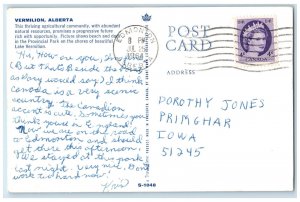 VERMILION, ALBERTA
This thriving agricultural community, with abundant
natural resources, promises a progressive future
rich with opportunity. Picture shows beach and
in the Provincial Park on the shores of beautiful
Lake Vermilion.
POST
CARD
ADDRESS
CANADA
EDMONTON
Hi, How are you, I'm good
(But that's beside the point as
they would say.) I think
Canada is a very scenic
country, the Canadian
accent is cute. Sometimes you
think you're in England.
Now we are on the road
to Edmonton and should
get there this afternoon.
We stayed at this park
last night. Very nice. Don't
work to hard now!
Kris
DOROTHY JONES
PRIMGHAR
IOWA
51245
S-1048